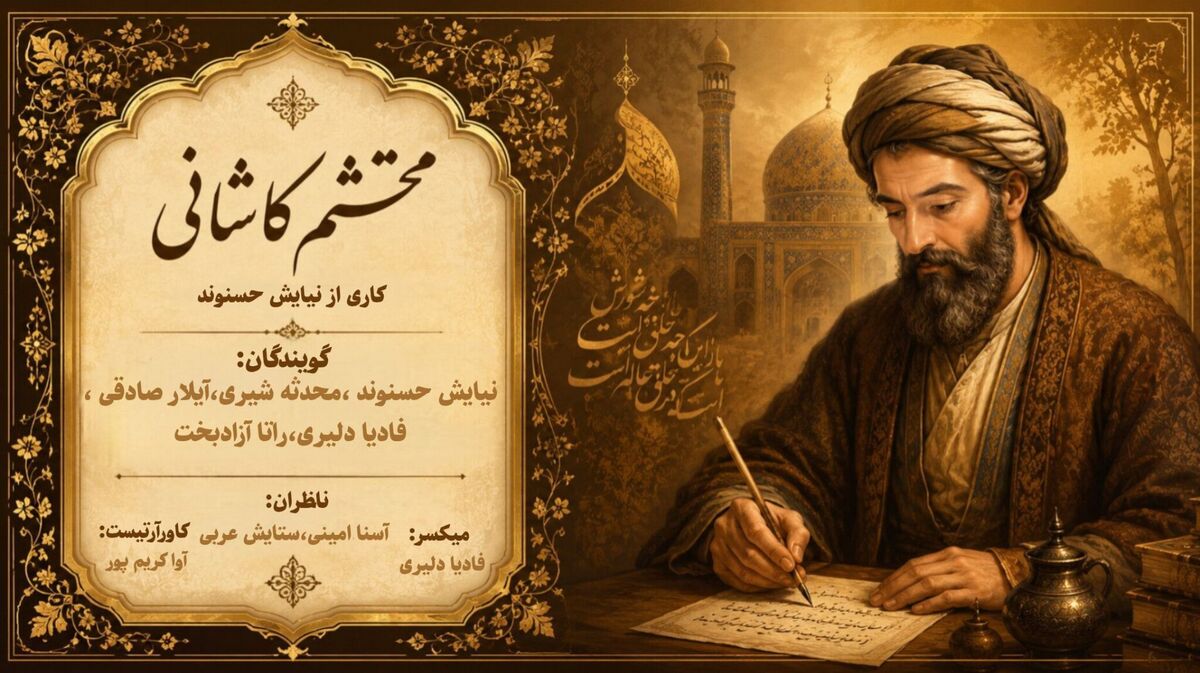 محتشم کاشانی
کاری از نیایش حسنوند
گویندگان:
نیایش حسنوند ،محدثه شیری،آیلار صادقی ،
فادیا دلیری،راتا آزادبخت
ناظران:
آسنا امینی،ستایش عربی
میکسر:
فادیا دلیری
کاورآرتیست:
آوا کریم پور
باز این چه
خلق
است